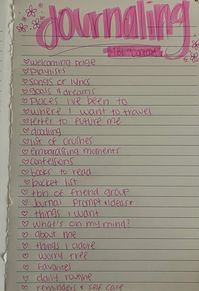 Journaling
welcoming page
playlists
songs or lyrics
goals & dreams
places I've been to
where I want to travel
letter to future me
doodling
list of crushes
embarrassing moments
confessions
books to read
bucket list
of friend group
Jurnal prompt + ideas
things I want
what's on my mind?
about me
things I adore
worry tree
favorites
daily routine
reminders + self care